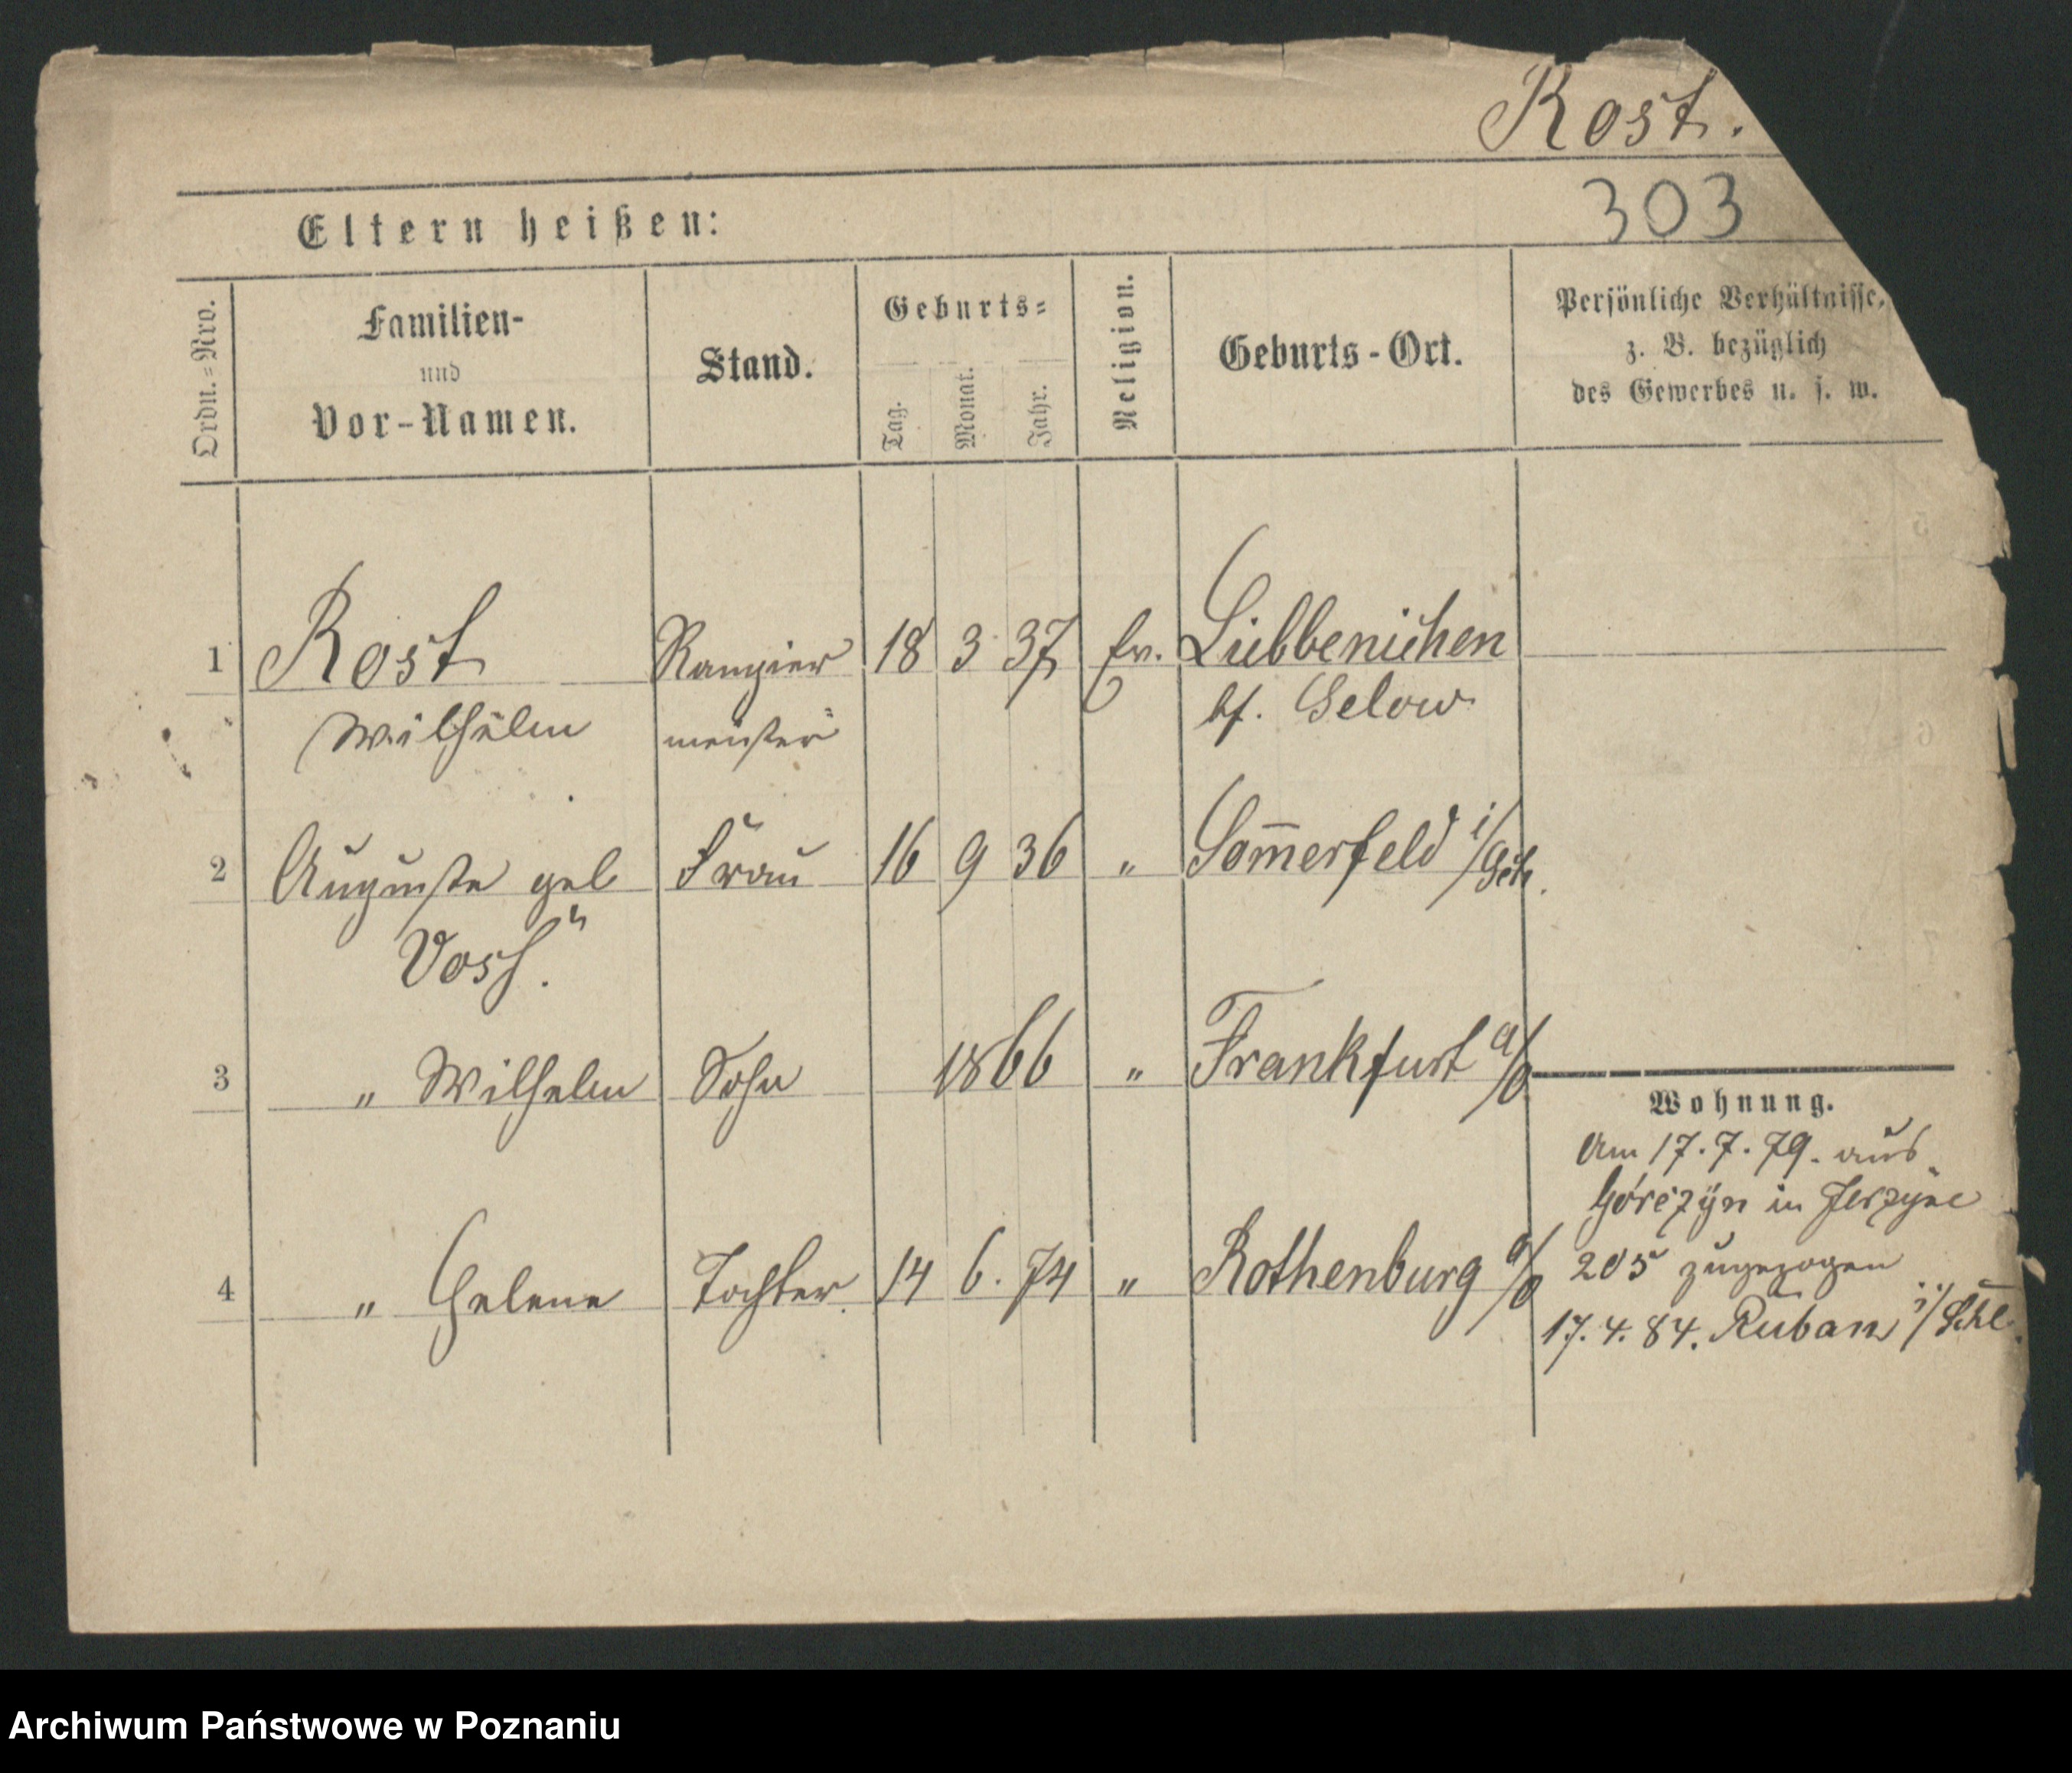 Rost.
303
Eltern heißen:
Ordn.=Nro.
Familien-
und
Vor-Namen.
Stand.
Geburts=
Tag.
Monat.
Jahr.
Religion.
Geburts-Ort.
Persönliche Verhältnisse,
z. B. bezüglich
des Gewerbes u. s. w.
1 Rost Rangier 18 3 37 Ev. Liebbenichen
Wilhelm meister bf. Selow
2 Auguste geb Frau 16 9 36 " Som̅erfeld i/
Vosh.
3 " Wilhelm Sohn 1866 " Frankfurt a/O
Wohnung.
Am 17.7.79. aus
Górczyn in Jerzyce
4 " Helene Tochter. 14 6. 74 " Rothenburg a/O
205 zugezogen
17.4.84. Ruban i/Schl.
Archiwum Państwowe w Poznaniu